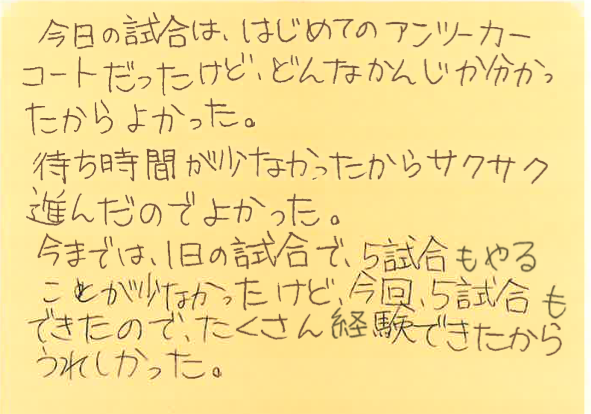 今日の試合は、はじめてのアンツーカー
コートだったけど、どんなかんじか分かっ
たからよかった。
待ち時間が少なかったからサクサク
進んだのでよかった。
今までは、1日の試合で、5試合もやる
ことが少なかったけど、今回、5試合も
できたので、たくさん経験できたから
うれしかった。